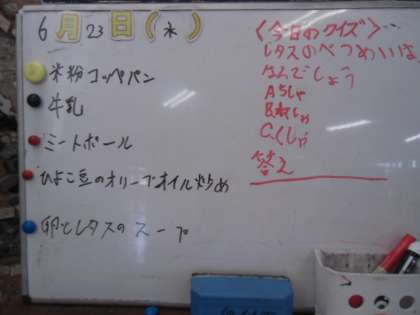 6月23日(水)
米粉コッペパン
牛乳
ミートボール
ひよこ豆のオリーブオイル炒め
卵とレタスのスープ
〈今日のクイズ〉
レタスのべつめいは、
なんでしょう
A ちしゃ
B. 
C. くしゃ
答え